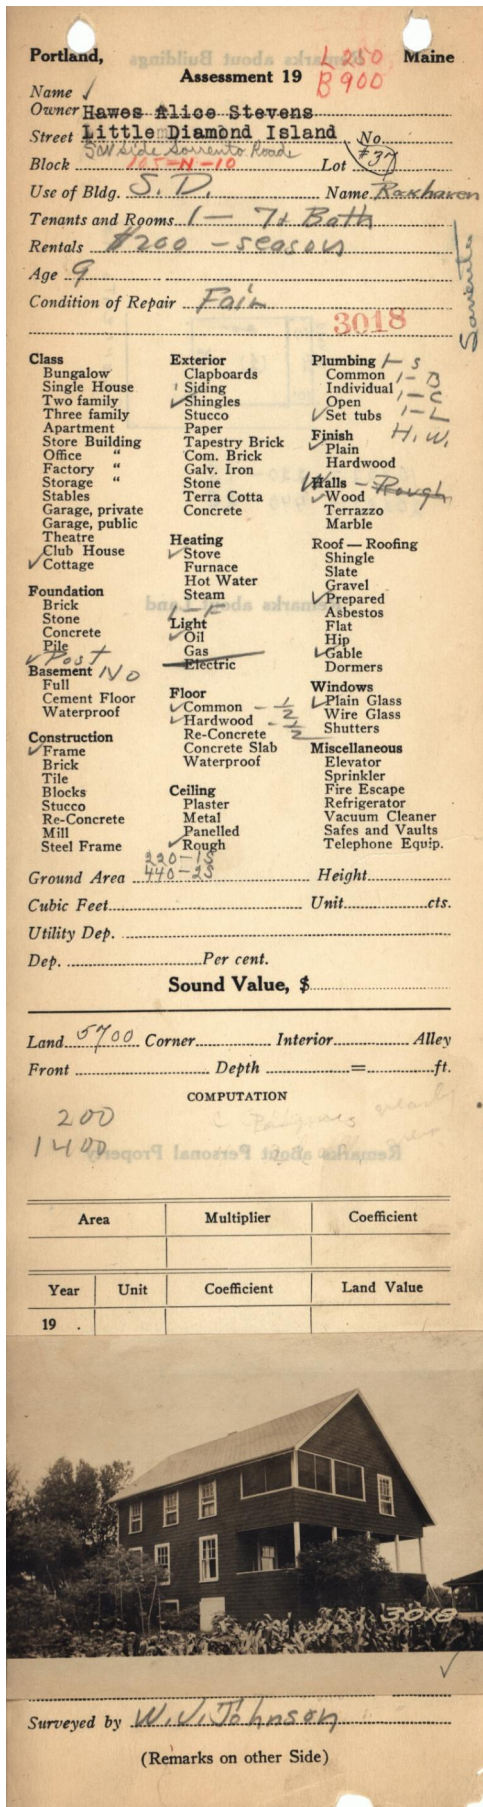 Portland, Maine
L 250
Assessment 19
B 900
Name ✓
Owner Hawes Alice Stevens
Street Little Diamond Island No.
SW side Sorrento Road #37
Block 105-N-10 Lot
Use of Bldg. S. D. Name Roxhaven
Tenants and Rooms 1 — 7+ Bath
Rentals $200 - season
Age 9
Condition of Repair Fair
3018
Sorrento
Class
Bungalow
Single House
Two family
Three family
Apartment
Store Building
Office "
Factory "
Storage "
Stables
Garage, private
Garage, public
Theatre
Club House
✓ Cottage
Foundation
Brick
Stone
Concrete
Pile
✓ Post
Basement No
Full
Cement Floor
Waterproof
Construction
✓ Frame
Brick
Tile
Blocks
Stucco
Re-Concrete
Mill
Steel Frame
Exterior
Clapboards
Siding
✓ Shingles
Stucco
Paper
Tapestry Brick
Com. Brick
Galv. Iron
Stone
Terra Cotta
Concrete
Heating
✓ Stove
Furnace
Hot Water
Steam
1-F
Light
✓ Oil
Gas
Electric
Floor
✓ Common - 1/2
✓ Hardwood - 1/2
Re-Concrete
Concrete Slab
Waterproof
Ceiling
Plaster
Metal
Panelled
✓ Rough
Plumbing 1- S
Common 1- B
Individual 1- C
Open 1- L
✓ Set tubs
H. W.
Finish
✓ Plain
Hardwood
Walls - Rough
✓ Wood
Terrazzo
Marble
Roof — Roofing
Shingle
Slate
Gravel
✓ Prepared
Asbestos
Flat
Hip
✓ Gable
Dormers
Windows
✓ Plain Glass
Wire Glass
Shutters
Miscellaneous
Elevator
Sprinkler
Fire Escape
Refrigerator
Vacuum Cleaner
Safes and Vaults
Telephone Equip.
220-1S
Ground Area 440-2S Height
Cubic Feet Unit cts.
Utility Dep.
Dep. Per cent.
Sound Value, $
Land 5700 Corner Interior Alley
Front Depth = ft.
COMPUTATION
200
1400
Area Multiplier Coefficient
Year Unit Coefficient Land Value
19 .
3018
✓
Surveyed by W. J. Johnson
(Remarks on other Side)